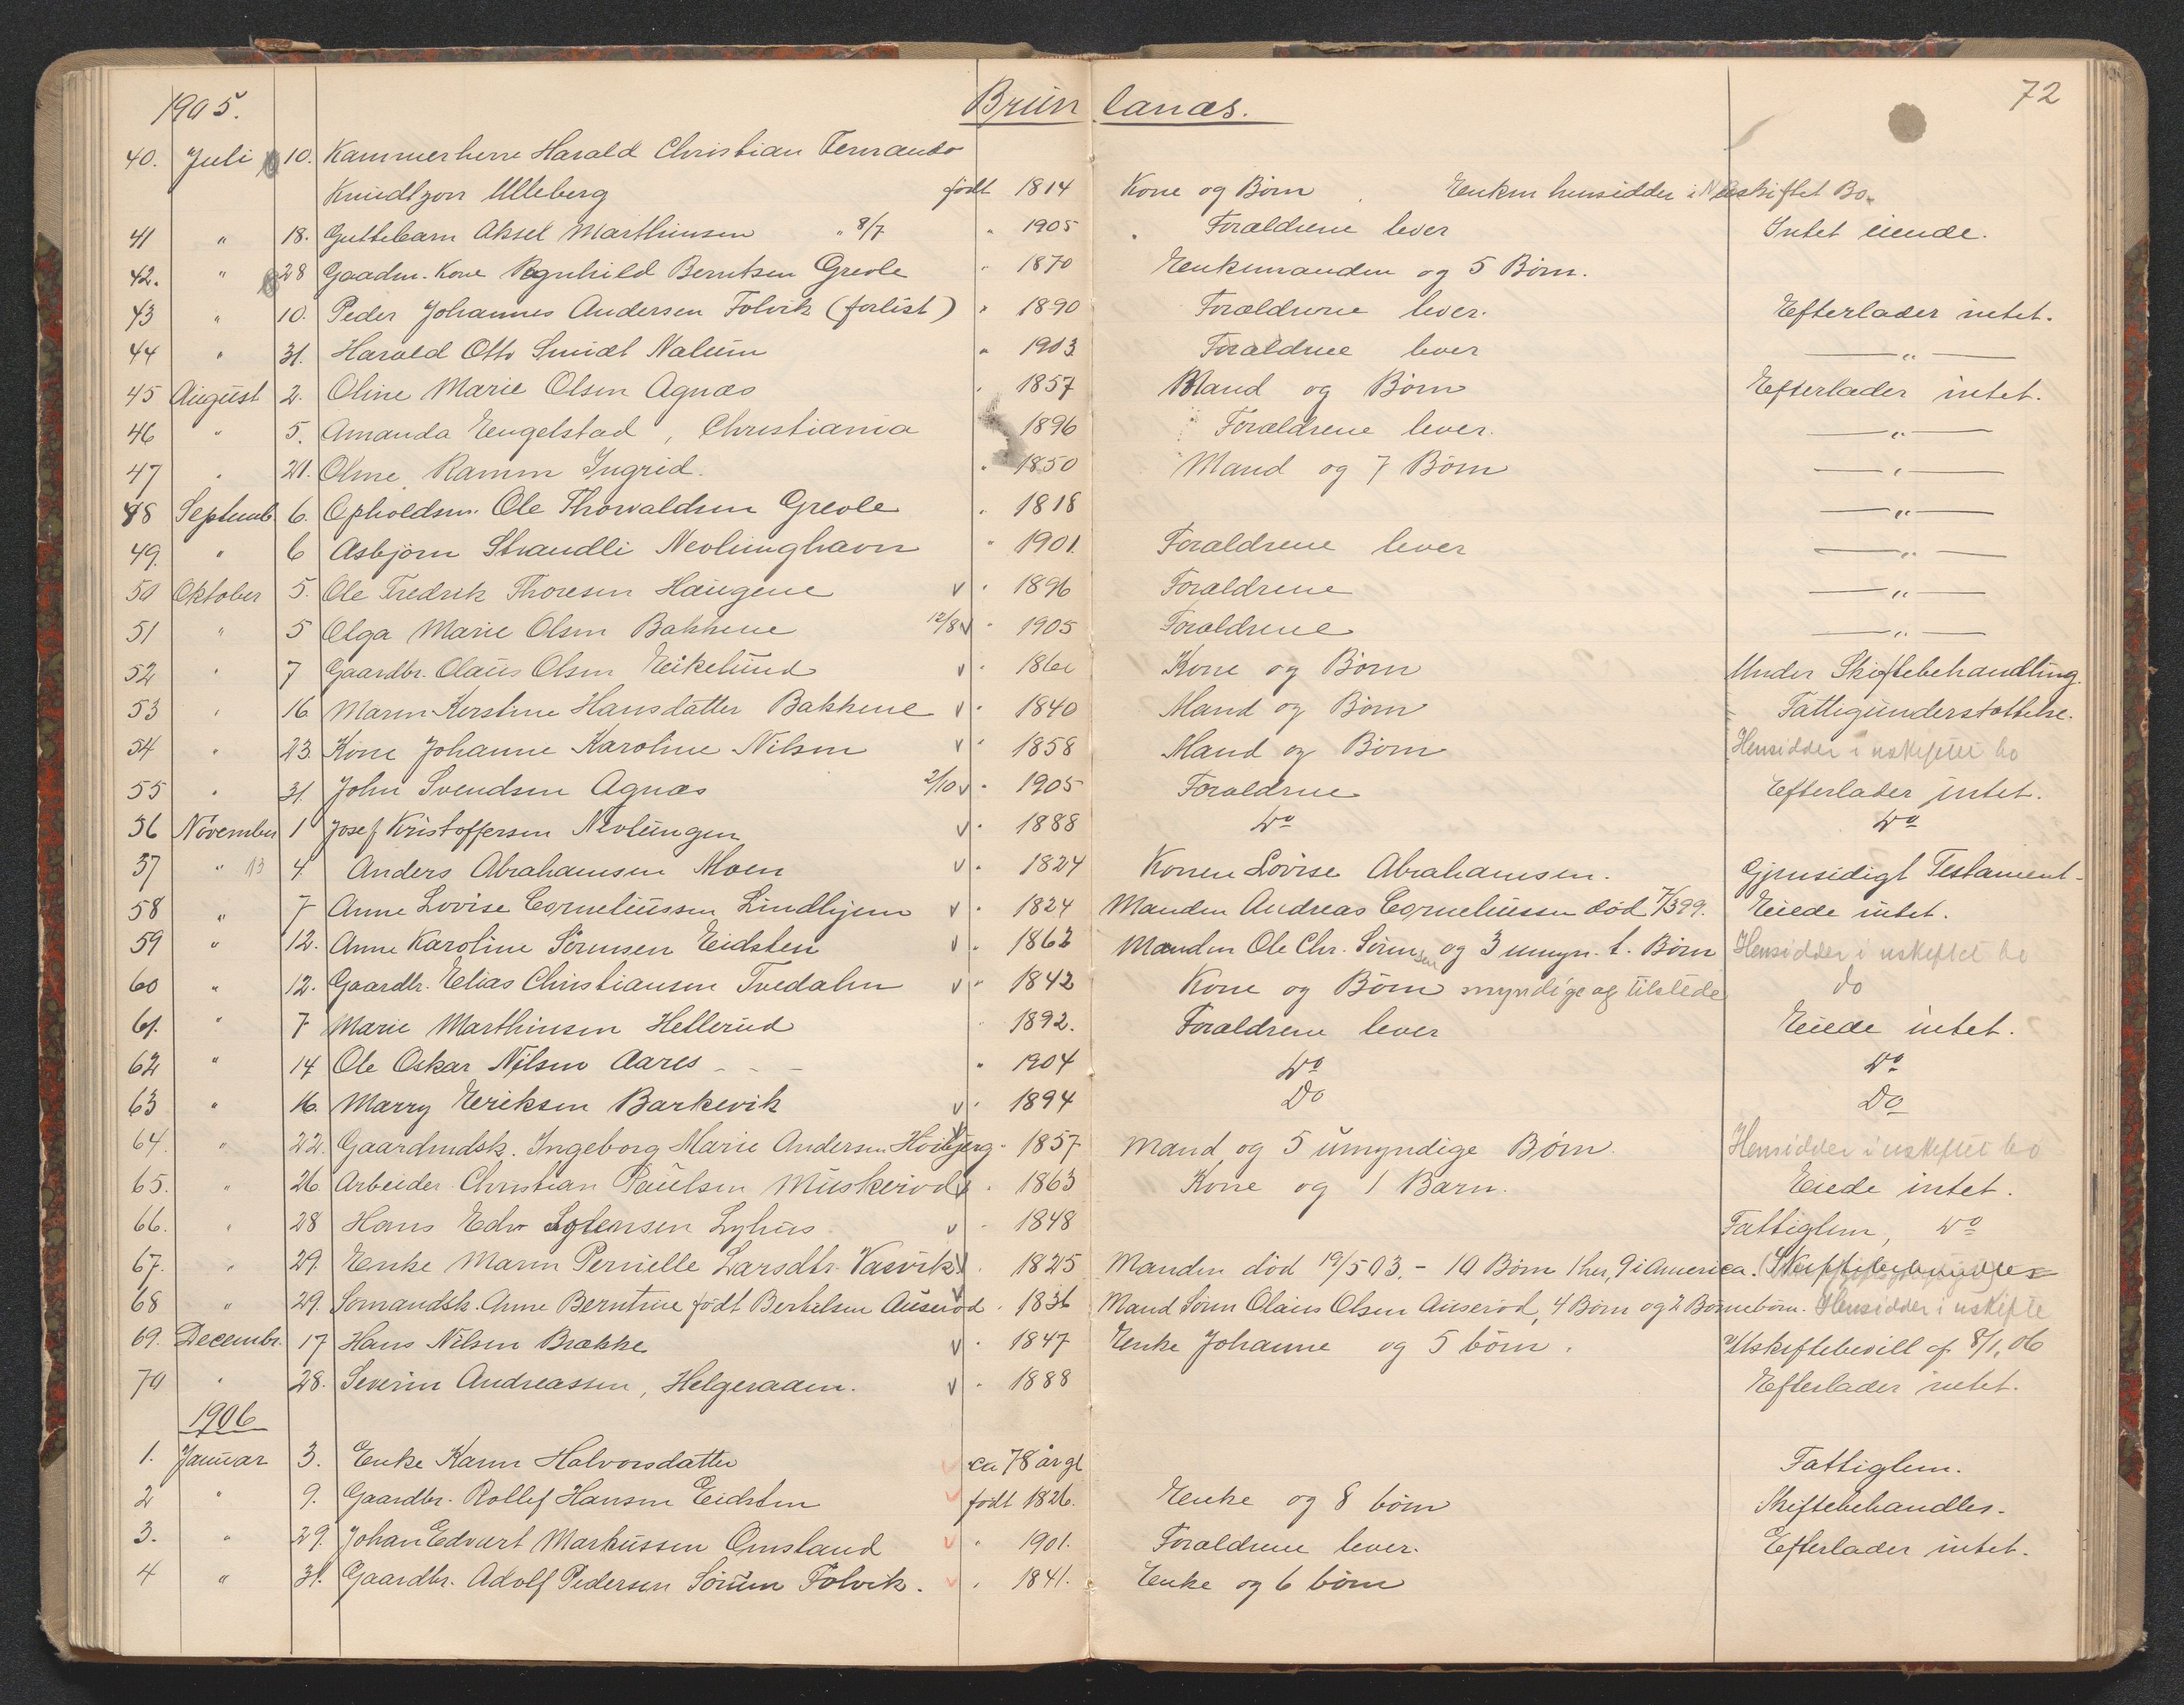 1905. Brunlanæs. 72
40. Juli 10. Kammerherre Harald Christian Fernando
Knudtzon Ulleberg født 1814 Kone og Børn Enken hensidder i uskiftet Bo.
41 " 18. Guttebarn Aksel Marthinsen " 8/7 " 1905 Forældrene lever Intet eiende.
42. " 28 Gaadm. Kone Ragnhild Berntsen Greole " 1870 Enkemanden og 5 Børn.
43 " 10. Peder Johannes Andersen Folvik (forlist) " 1890 Forældrene lever. Efterlader intet.
44 " 31. Harald Otto Smidt Nalum " 1903 Forældrene lever — " —
45 August 2. Oline Marie Olsen Agnæs " 1857 Mand og Børn Efterlader intet.
46 " 5. Amanda Engelstad, Christiania 1896 Forældrene lever. — " —
47 " 21. Oline Ramm Ingrid. " 1850 Mand og 7 Børn — " —
48 Septemb 6. Opholdsm. Ole Thorvaldsen Greole " 1818 — " —
49. " 6 Asbjørn Strandli Nevlunghavn " 1901. Forældrene lever — " —
50 Oktober 5. Ole Fredrik Thoresen Haugene v " 1896 Forældrene — " —
51 " 5 Olga Marie Olsen Bakkene 12/8 v " 1905 Forældrene — " —
52 " 7 Gaardbr. Olaus Olsen Eikelund v " Kone og Børn Under Skiftebehandling.
53 " 16 Maren Kerstine Hansdatter Bakkene v " 1840 Mand og Børn Fattigunderstøttelse.
54 " 23. Kone Johanne Karoline Nilsen v " 1858 Mand og Børn Hensidder i uskiftet bo
55 " 31. John Svendsen Agnæs 2/10 v " 1905 Forældrene Efterlader intet.
56 November 1 Josef Kristoffersen Nevlungen v " 1888 Do Do
57 " 13 4 Anders Abrahamsen Moen v " 1824 Konen Lovise Abrahamsen. Gjensidigt Testament-
58 " 7 Anne Lovise Corneliussen Lindhjem v " 1824 Manden Andreas Corneliussen død 7/3 99. Eiede intet.
59 " 12. Anne Karoline Sørensen Eidsten v " 1863 Manden Ole Chr. Sørensen og 3 umyn. t. Børn Hensidder i uskiftet bo
60 " 12. Gaardbr. Elias Christiansen Tvedalen v " 1842 Kone og Børn myndige og tilstede do
61. " 7 Marie Marthinsen Hellerud " 1892. Forældrene lever Eiede intet.
62 " 14 Ole Oskar Nilsen Aares - - - " 1904 Do Do
63 " 16. Marry Eriksen Barkevik v " 1894 Do Do
64. " 22. Gaardmdsk. Ingeborg Marie Andersen Høibjerg v " 1857 Mand og 5 umyndige Børn. Hensidder i uskiftet bo
65. " 26. Arbeider Christian Paulsen Muskerød v " 1863 Kone og 1 Barn. Eiede intet.
66. " 28 Hans Edv. Lyhus v " 1848 Fattiglem, Do
67. " 29. Enke Maren Pernielle Larsdtr. Vasvik v " 1825 Manden død 19/5 03. - 10 Børn 1 her, 9 i America.
68 " 29. Sømandsk. Anne Berntine født Bertelsen Auserød v " 1836 Mand Søren Olaus Olsen Auserød, 4 Børn og 2 Børnebørn. Hensidder i uskifte
69. Decembr. 17 Hans Nilsen Brække v " 1847 Enke Johanne og 5 børn. Uskiftebevill af 8/1, 06
70 " 28. Severin Andreassen, Helgeraaen. v " 1888 Efterlader intet.
1906
1. Januar 3. Enke Karen Halvorsdatter v ca 78 år gl Fattiglem.
2 " 9. Gaardbr. Rollef Hansen Eidsten v født 1826. Enke og 8 børn Skiftebehandles.
3. " 29. Johan Edvart Markussen Omsland v " 1901. Forældrene lever. Efterlader intet.
4 " 31. Gaardbr. Adolf Pedersen Sørum Folvik. v " 1841. Enke og 6 børn